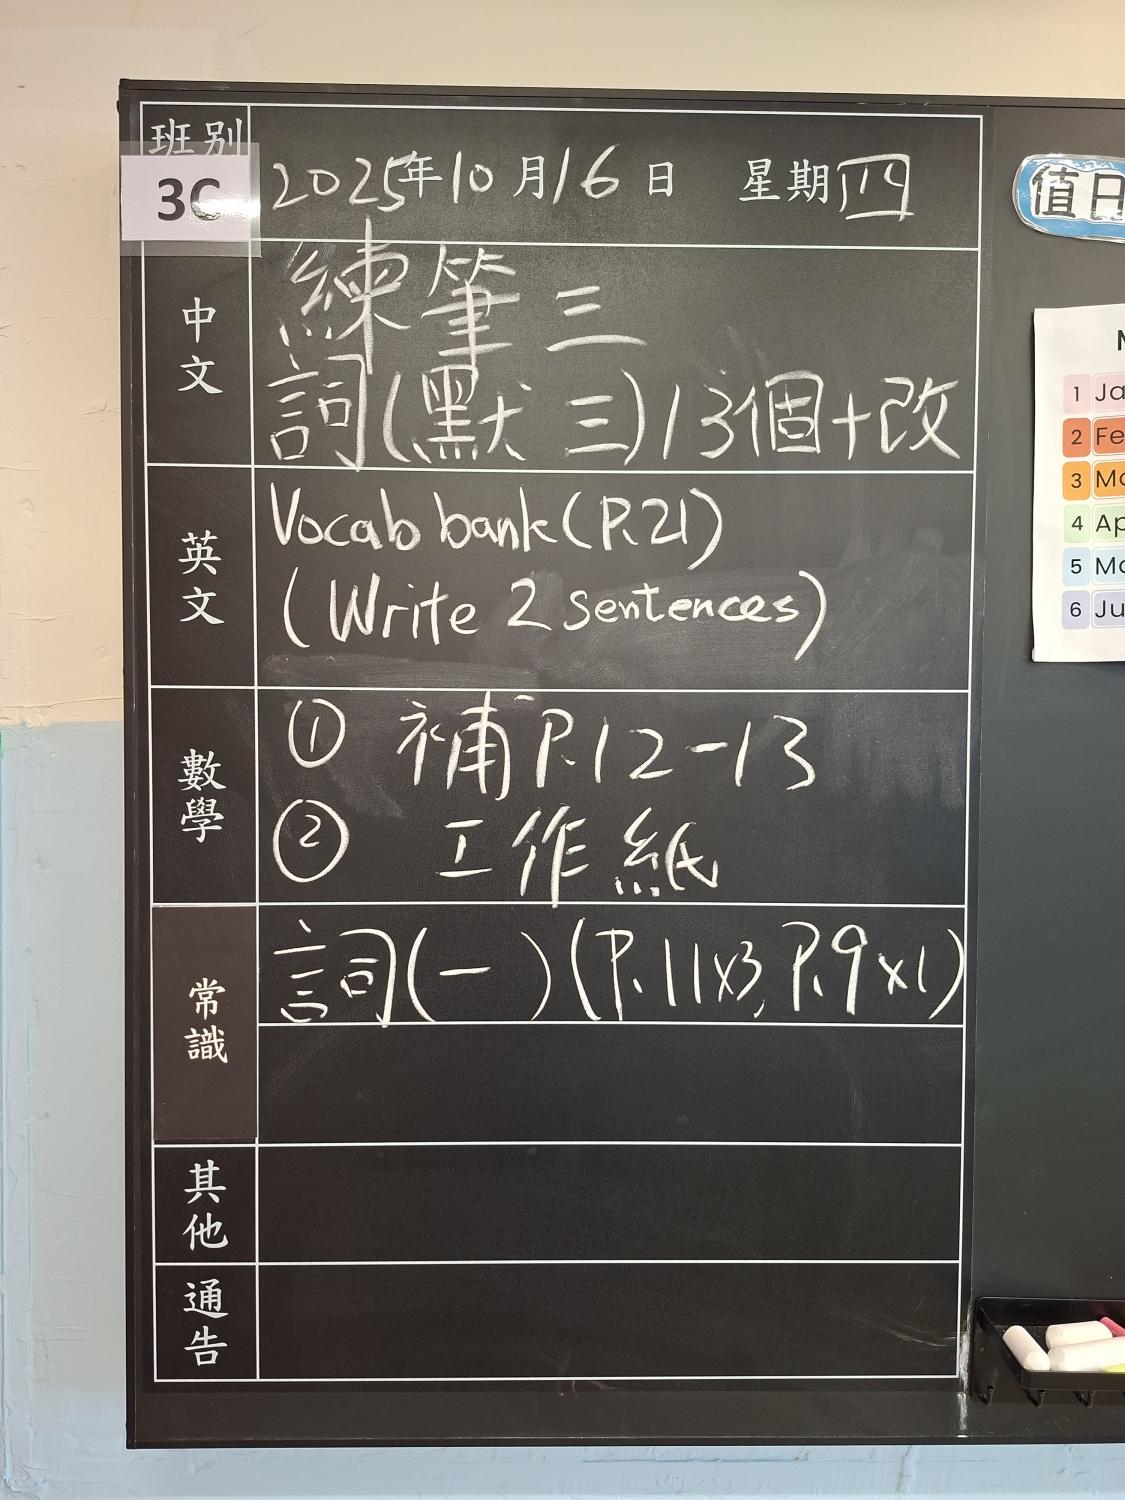 班別
3C
2025年10月16日 星期四
中文
練筆三
詞(默三)13個+改
英文
Vocab bank (P.21)
(Write 2 sentences)
數學
① 補P.12-13
② 工作紙
常識
詞(一)(P.11x3, P.9x1)
其他
通告
值日
1 Ja
2 Fe
3 Ma
4 Ap
5 Ma
6 Ju